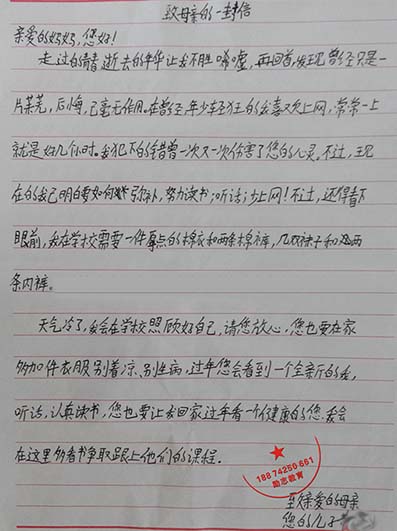 致母亲的一封信
亲爱的妈妈，您好！
走过的青春逝去的年华让我不胜唏嘘，再回首发现曾经只是一
片荒芜，后悔，已毫无作用。在曾经，年少轻狂的我喜欢上网，常常一上
就是好几个小时。我犯下的错曾一次又一次伤害了您的心灵。不过，现
在的我已明白要如何弥补，努力读书；听话；少上网！不过，还得看下
眼前，我在学校需要一件厚点的棉衣和两条棉裤，几双袜子和两
条内裤。
天气冷了，我会在学校照顾好自己，请您放心，您也要在家
多加件衣服别着凉、别生病，过年您会看到一个全新的我，
听话，认真读书，您也要让我回家过年看一个健康的您。我会
在这里多看书争取跟上他们的课程。
188 7425 0661
励志教育
至久亲爱的母亲
您的儿子